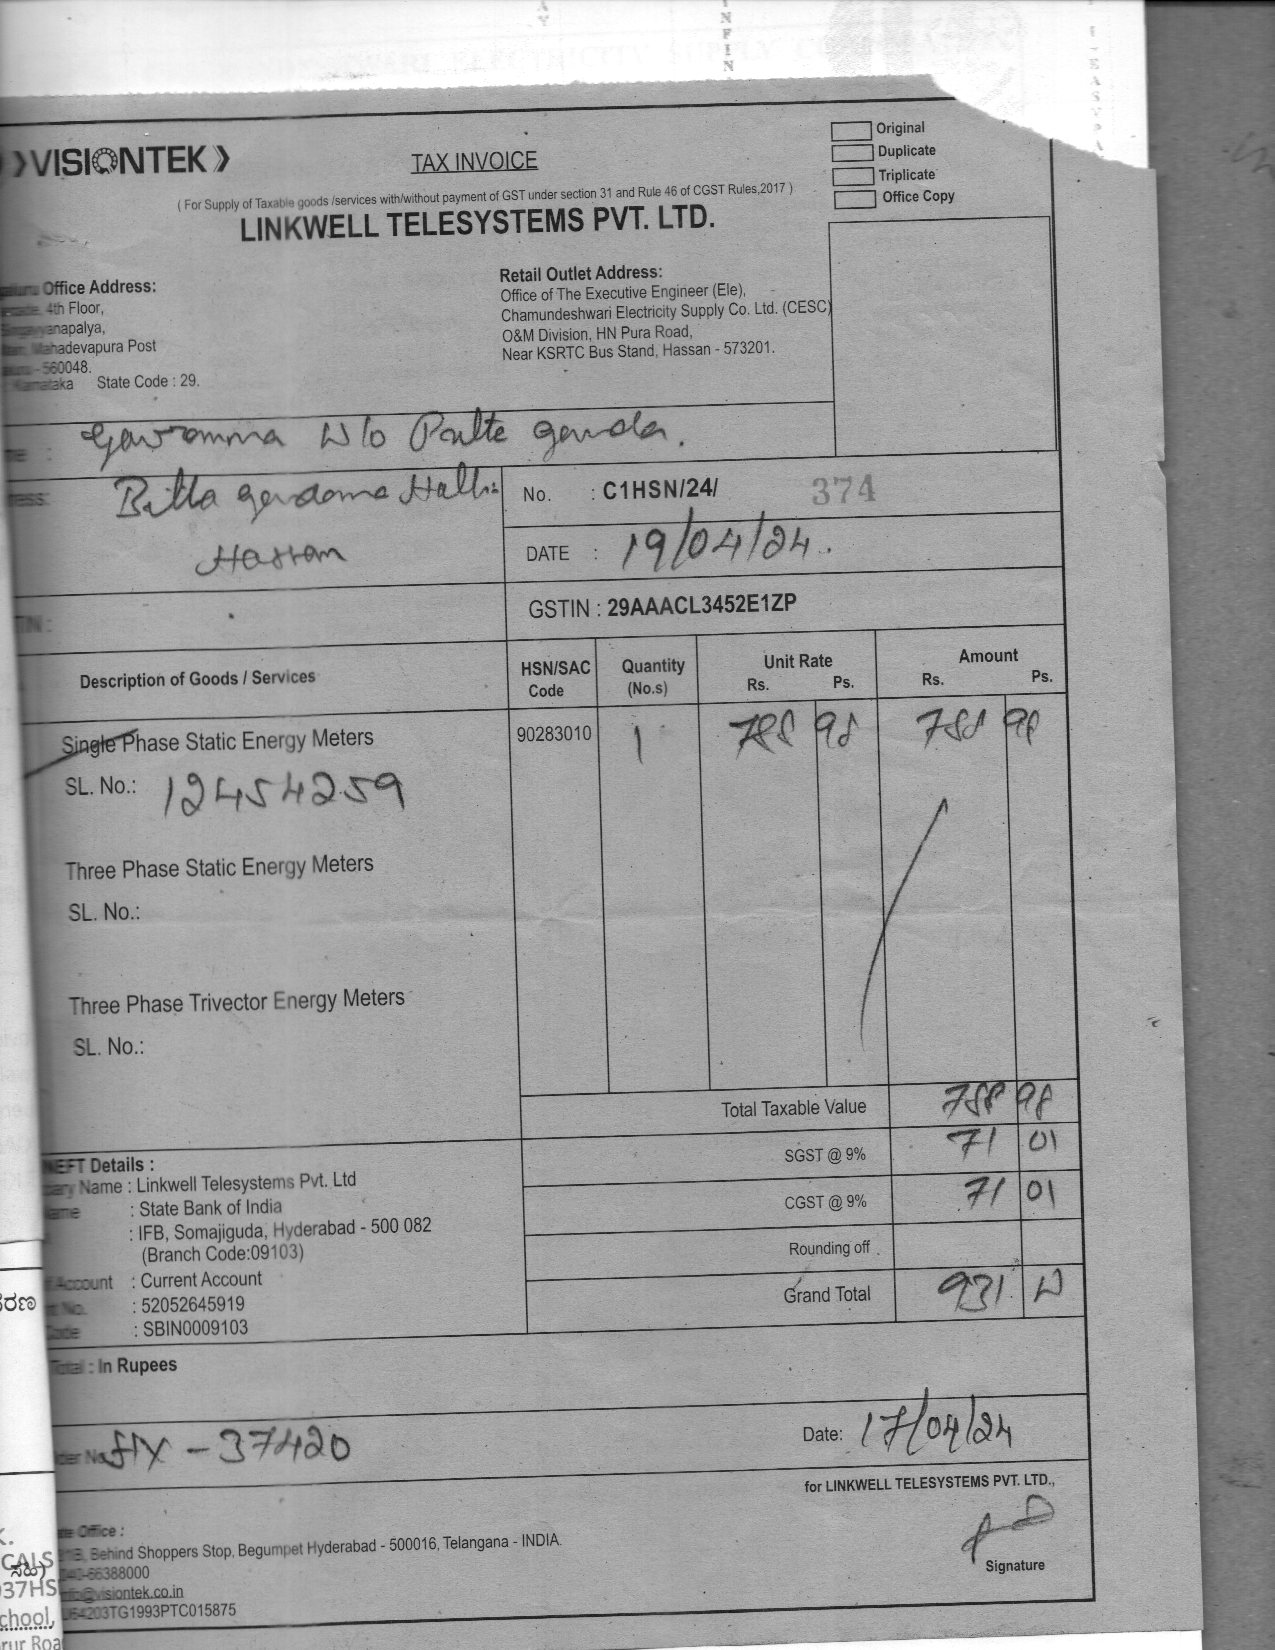 VISIONTEK
TAX INVOICE
Original
Duplicate
Triplicate
Office Copy
( For Supply of Taxable goods /services with/without payment of GST under section 31 and Rule 46 of CGST Rules,2017 )
LINKWELL TELESYSTEMS PVT. LTD.
Office Address:
4th Floor,
Mahadevapura Post
- 560048.
Karnataka State Code : 29.
Retail Outlet Address:
Office of The Executive Engineer (Ele),
Chamundeshwari Electricity Supply Co. Ltd. (CESC)
O&M Division, HN Pura Road,
Near KSRTC Bus Stand, Hassan - 573201.
Gowramma W/o Putte gowda.
Hassan
No. : C1HSN/24/ 374
DATE : 19/04/24.
GSTIN : 29AAACL3452E1ZP
Description of Goods / Services HSN/SAC Code Quantity (No.s) Unit Rate Rs. Ps. Amount Rs. Ps.
Single Phase Static Energy Meters 90283010 1 788 98 788 98
SL. No.: 12454259
Three Phase Static Energy Meters
SL. No.:
Three Phase Trivector Energy Meters
SL. No.:
Total Taxable Value 788 98
SGST @ 9% 71 01
CGST @ 9% 71 01
Rounding off
Grand Total 931 00
NEFT Details :
Name : Linkwell Telesystems Pvt. Ltd
Name : State Bank of India
: IFB, Somajiguda, Hyderabad - 500 082
(Branch Code:09103)
Account : Current Account
No. : 52052645919
Code : SBIN0009103
Total : In Rupees
37420
Date: 17/04/24
for LINKWELL TELESYSTEMS PVT. LTD.,
Signature
Office :
Behind Shoppers Stop, Begumpet Hyderabad - 500016, Telangana - INDIA.
040-66388000
info@visiontek.co.in
64203TG1993PTC015875